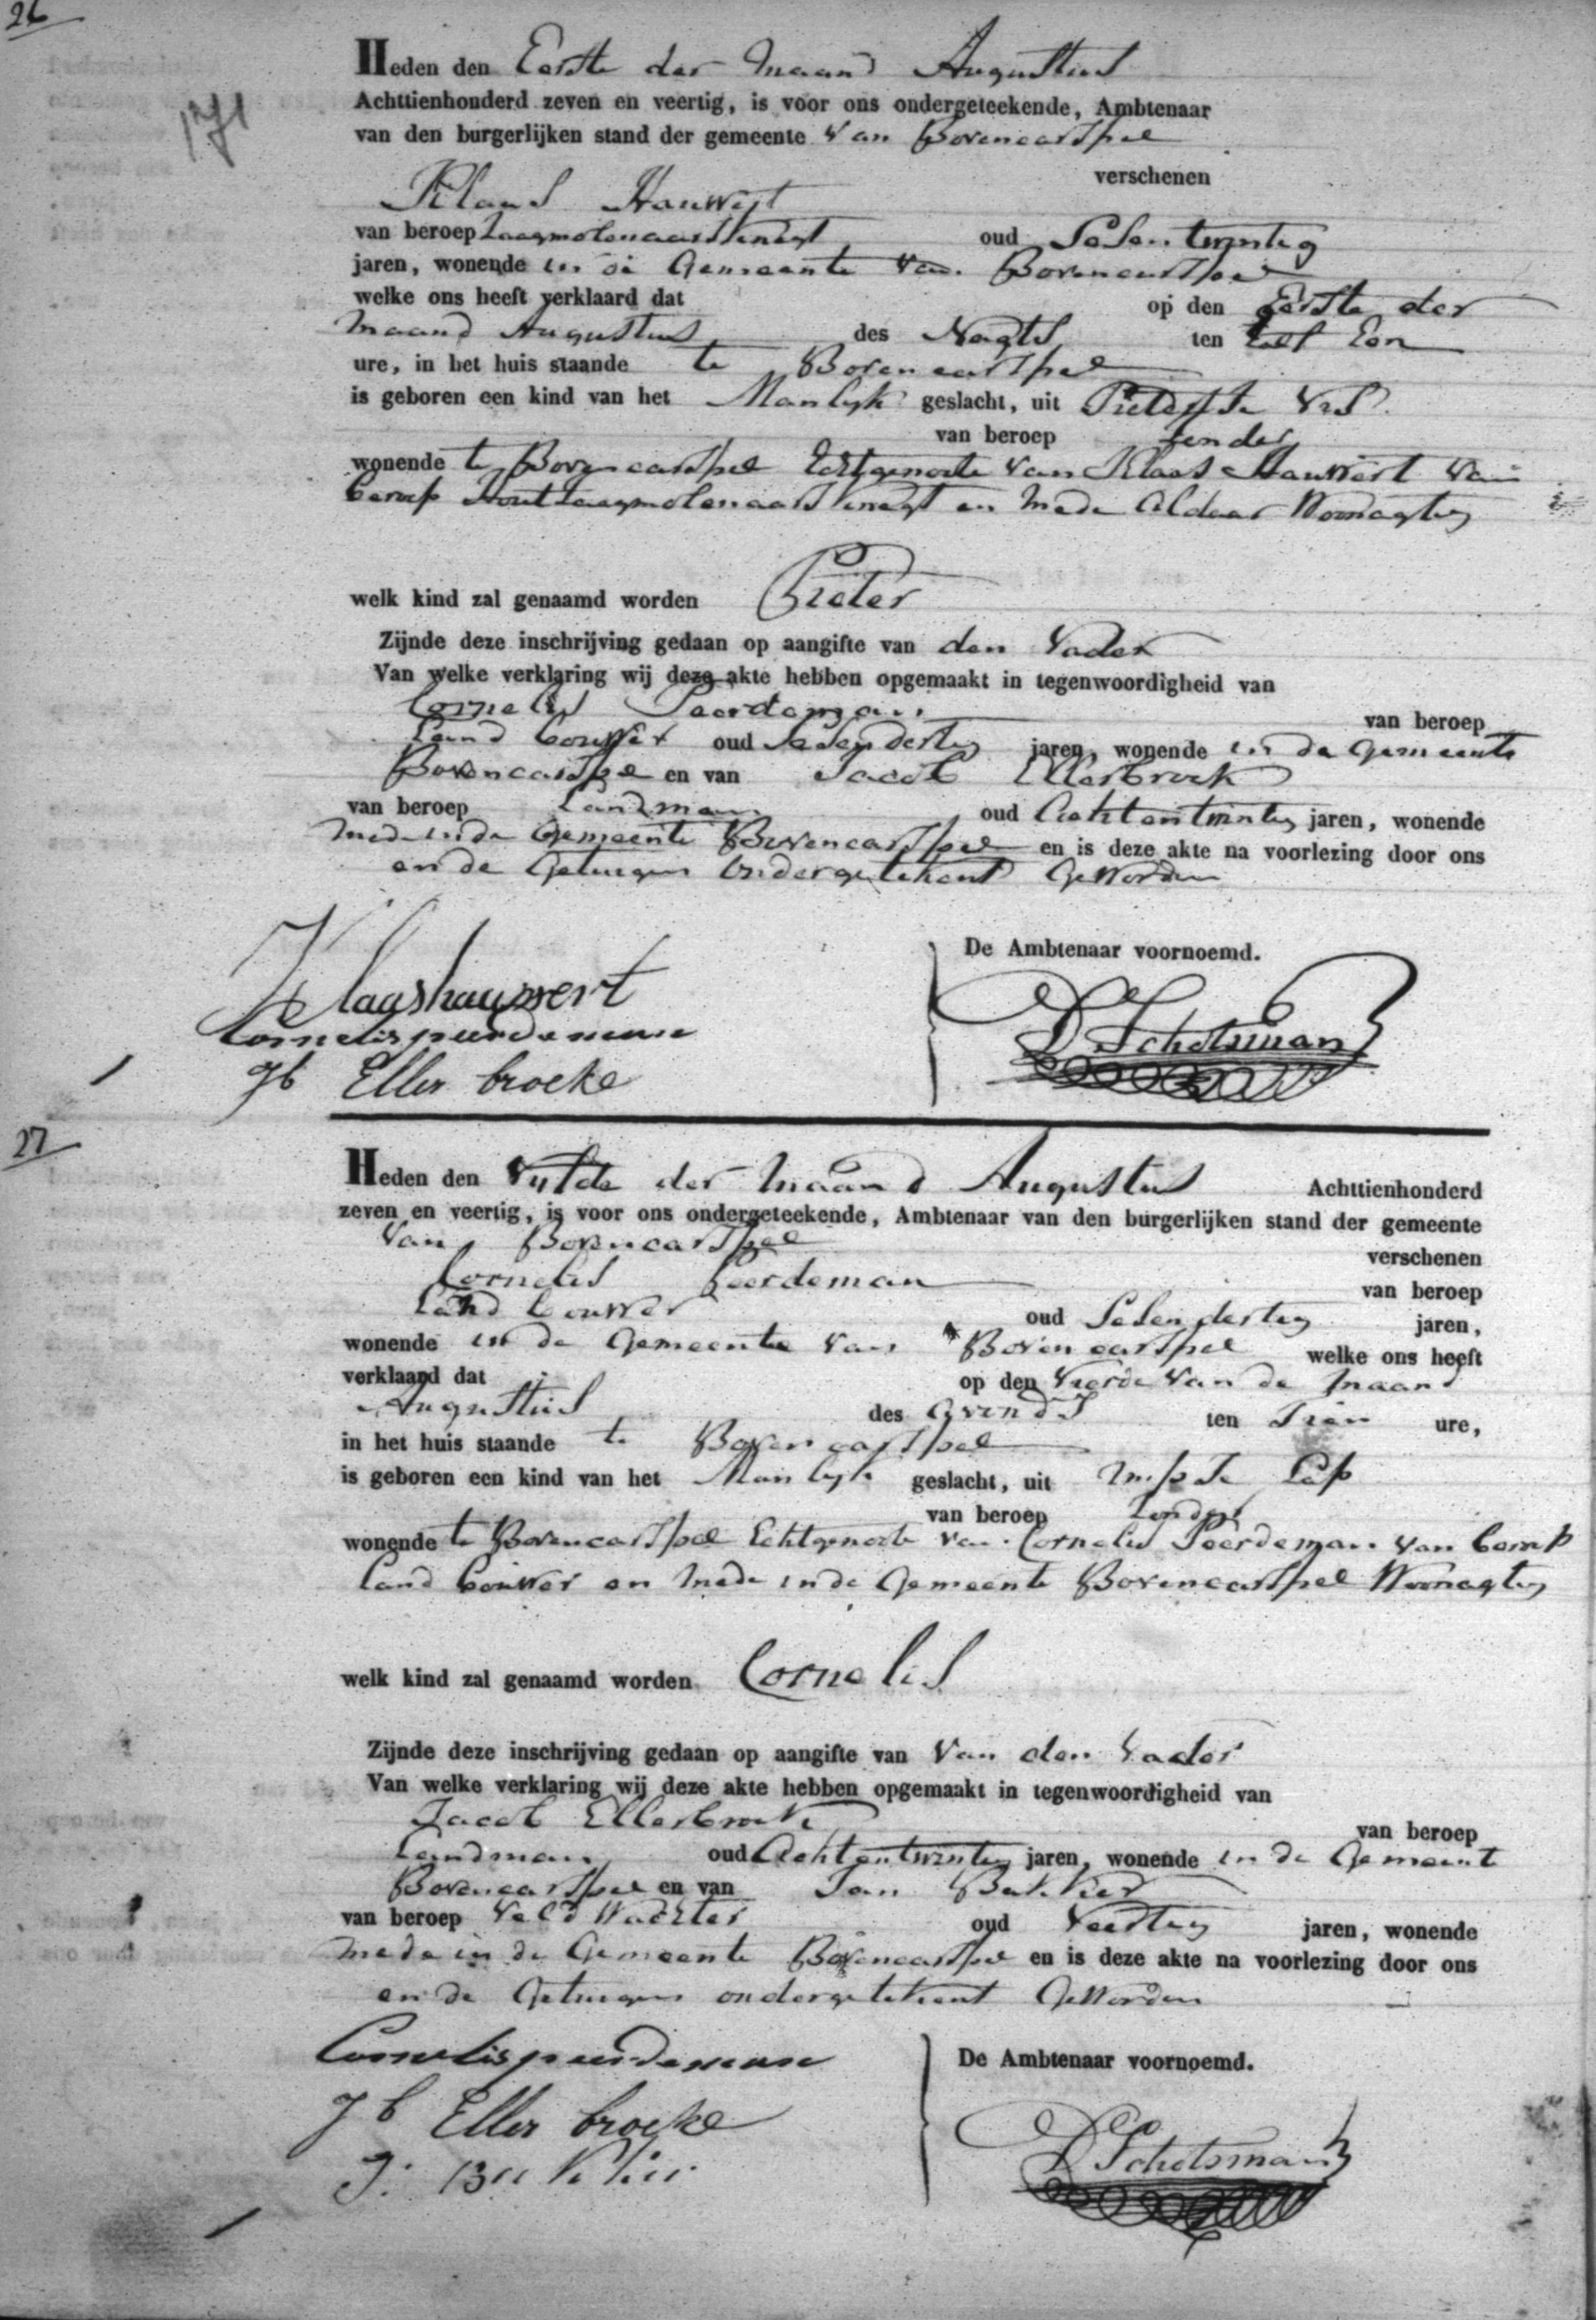 26
171
Heden den Eerste der maand Augustus
Achttienhonderd zeven en veertig, is voor ons ondergeteekende, Ambtenaar
van den burgerlijken stand der gemeente van Bovencarspel
verschenen
Klaas Hauwert
van beroep Zaagmolenaarsknegt oud Sesentwintig
jaren, wonende in de Gemeente van Bovencarspel
welke ons heeft verklaard dat op den Eerste der
maand Augustus des Nagts ten Een
ure, in het huis staande te Bovencarspel
is geboren een kind van het Manlijk geslacht, uit Pietertje Vis
van beroep zonder
wonende te Bovencarspel Echtgenoote van Klaas Hauwert van
beroep Houtzaagmolenaarsknegt en mede Aldaar Woonagtig
welk kind zal genaamd worden Pieter
Zijnde deze inschrijving gedaan op aangifte van den Vader
Van welke verklaring wij deze akte hebben opgemaakt in tegenwoordigheid van
Cornelis Peerdeman
van beroep
Landbouwer oud Sesendertig jaren, wonende in de Gemeente
Bovencarspel en van Jacob Ellerbroek
van beroep Landman oud Achtentwintig jaren, wonende
mede in de Gemeente Bovencarspel en is deze akte na voorlezing door ons
en de Getuigen Ondergetekent Geworden
De Ambtenaar voornoemd.
Klaas hauwert
Cornelis peerdeman
Jb Ellerbroeke
D Schotsman
27
Heden den Vyfde der maand Augustus Achttienhonderd
zeven en veertig, is voor ons ondergeteekende, Ambtenaar van den burgerlijken stand der gemeente
van Bovencarspel
verschenen
Cornelis Peerdeman
van beroep
Landbouwer oud Sesendertig jaren,
wonende in de Gemeente van Bovencarspel welke ons heeft
verklaard dat op den Vierde van de maand
Augustus des Avonds ten Tien ure,
in het huis staande te Bovencarspel
is geboren een kind van het Manlijk geslacht, uit Lap
van beroep zonder
wonende te Bovencarspel Echtgenoote van Cornelis Peerdeman van beroep
Landbouwer en mede in de Gemeente Bovencarspel Woonagtig
welk kind zal genaamd worden Cornelis
Zijnde deze inschrijving gedaan op aangifte van Van den Vader
Van welke verklaring wij deze akte hebben opgemaakt in tegenwoordigheid van
Jacob Ellerbroek
van beroep
Landman oud Achtentwintig jaren, wonende in de Gemeente
Bovencarspel en van Jan
van beroep Veld Wachter oud Veertig jaren, wonende
mede in de Gemeente Bovencarspel en is deze akte na voorlezing door ons
en de Getuigen ondergetekent Geworden
De Ambtenaar voornoemd.
Cornelis peerdeman
Jb Ellerbroeke
J.
D Schotsman